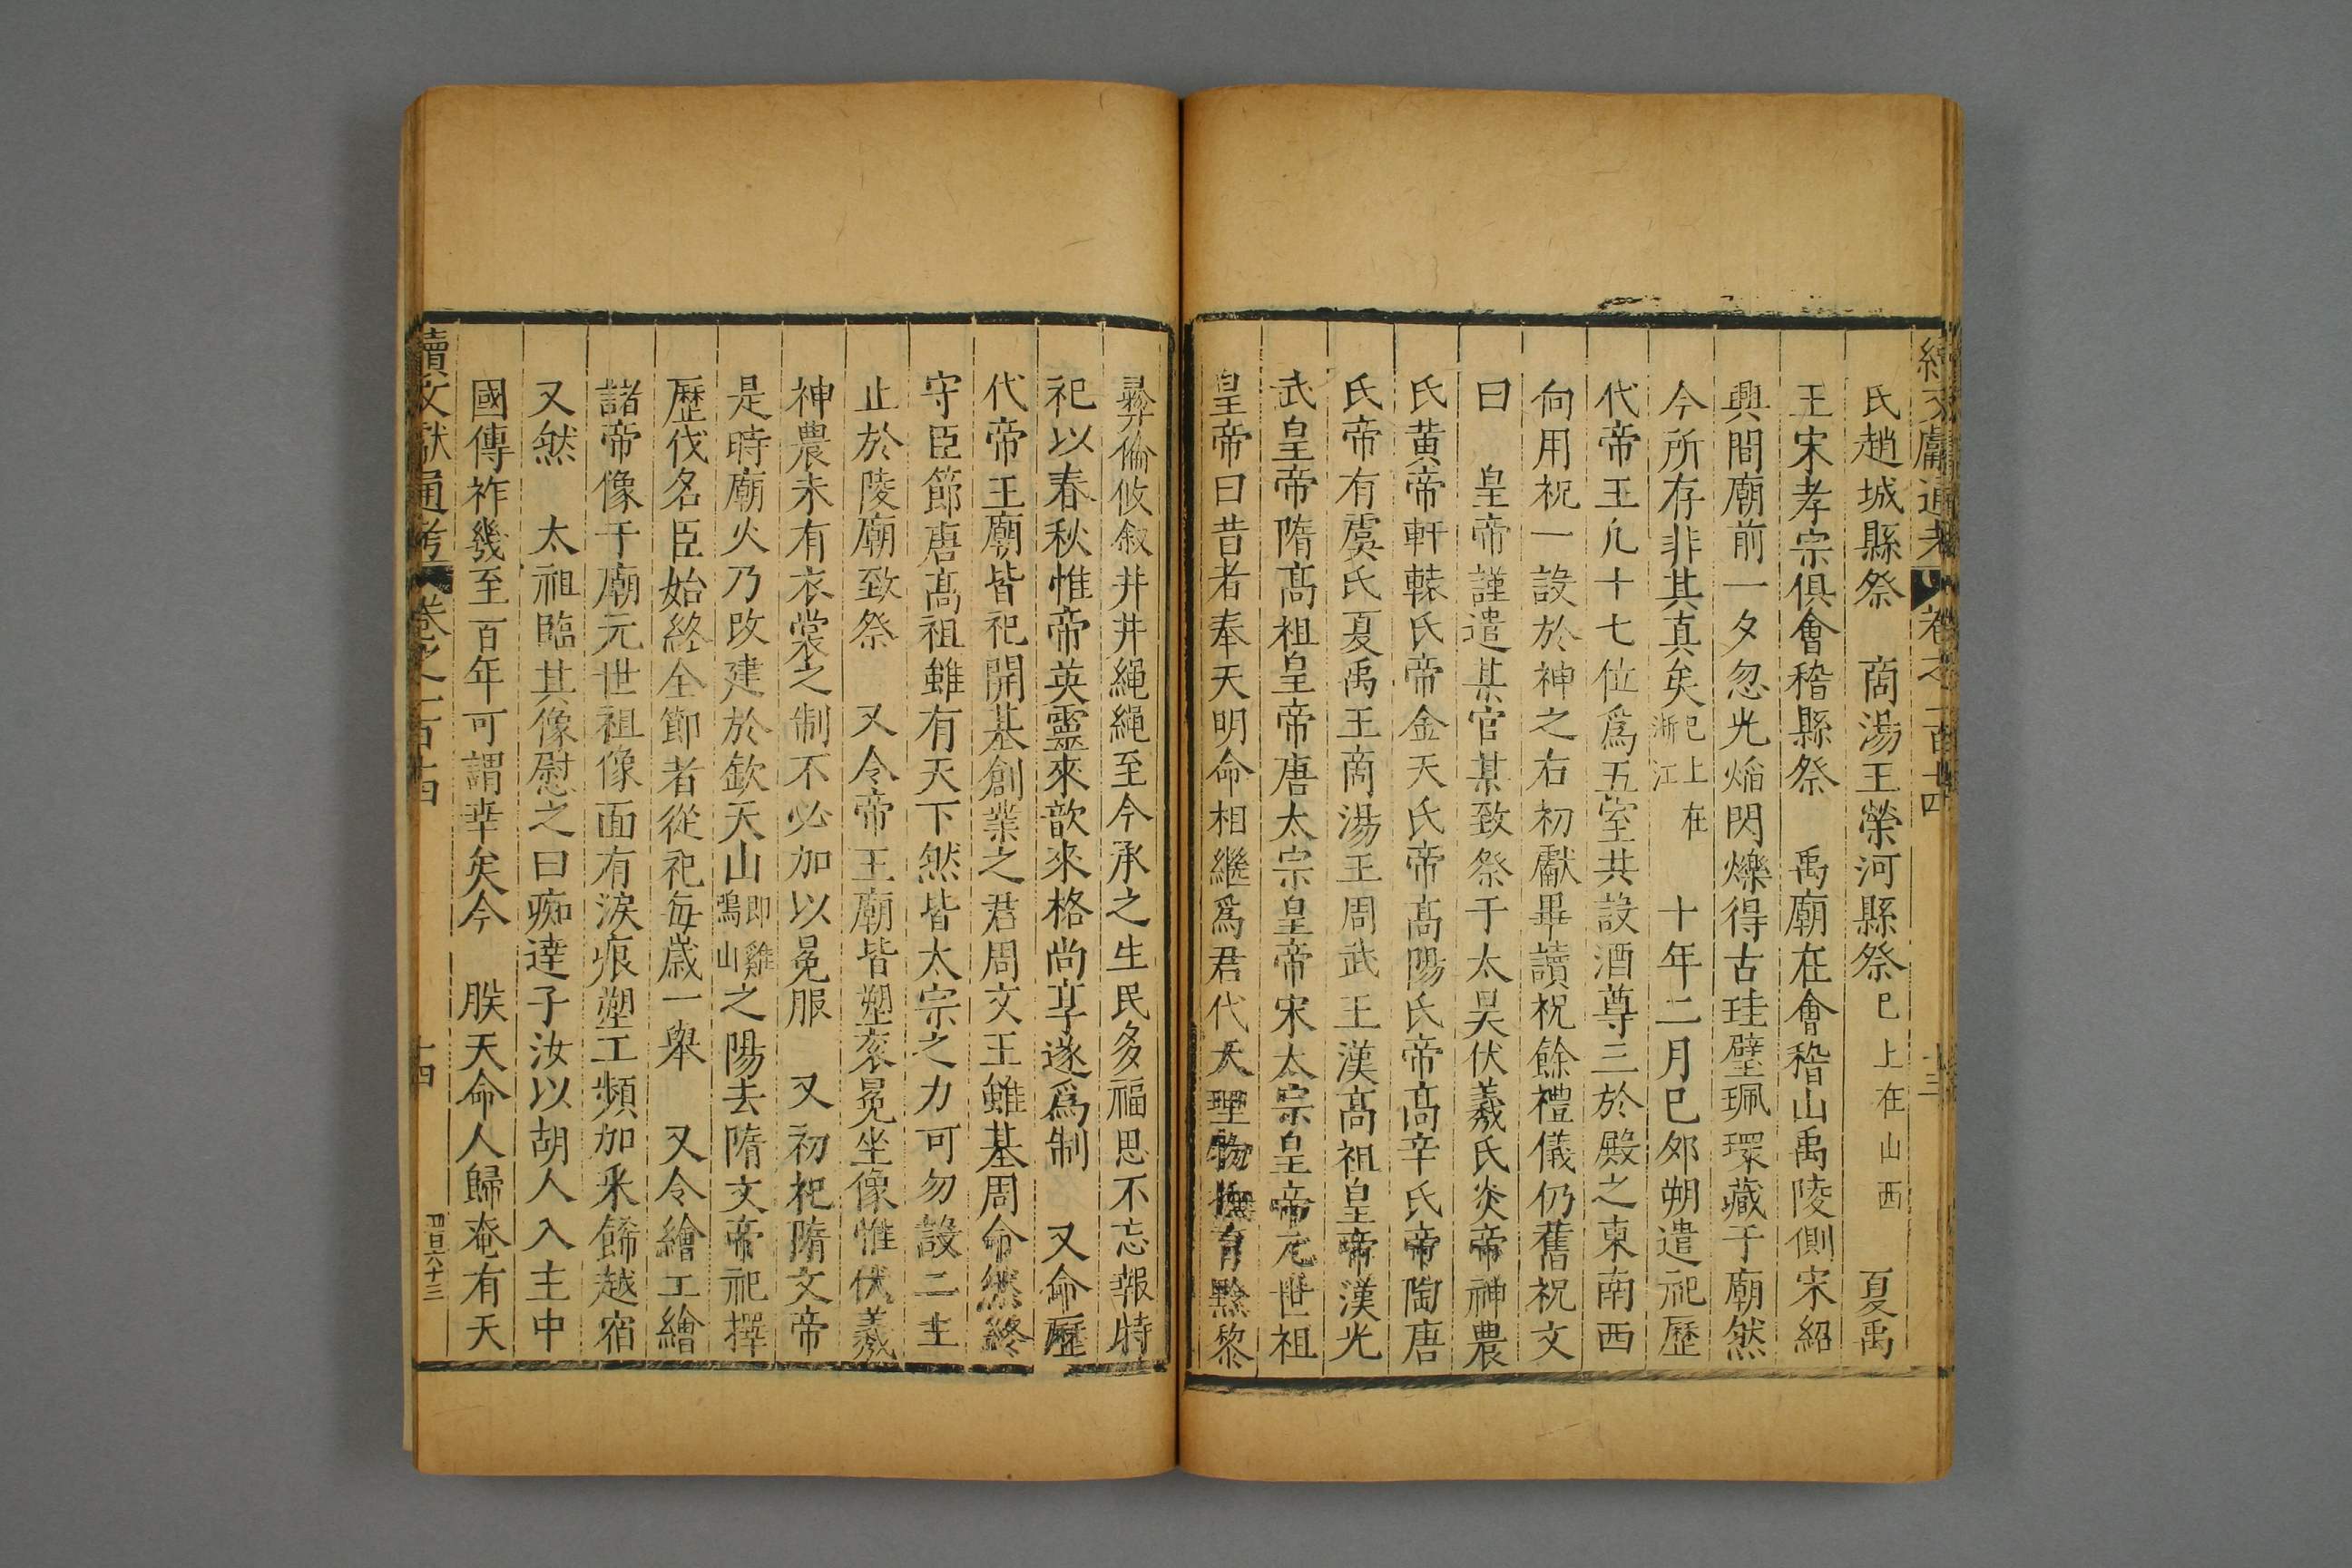 續文獻通考 卷之一百十四 十三
氏趙城縣祭 商湯王榮河縣祭已上在山西 夏禹
王宋孝宗俱會稽縣祭 禹廟在會稽山禹陵側宋紹
興間廟前一夕忽光焰閃爍得古珪璧珮環藏于廟然
今所存非其真矣已上在浙江 十年二月己卯朔遣祀歷
代帝王凡十七位爲五室共設酒尊三於殿之東南西
向用祝一設於神之右初獻畢讀祝餘禮儀仍舊祝文
曰 皇帝謹遣某官某致祭于太昊伏羲氏炎帝神農
氏黃帝軒轅氏帝金天氏帝高陽氏帝高辛氏帝陶唐
氏帝有虞氏夏禹王商湯王周武王漢高祖皇帝漢光
武皇帝隋高祖皇帝唐太宗皇帝宋太宗皇帝元世祖
皇帝曰昔者奉天明命相繼爲君代天理物撫育黔黎
彝倫攸叙井井繩繩至今承之生民多福思不忘報特
祀以春秋惟帝英靈來歆來格尚享遂爲制 又命歷
代帝王廟皆祀開基創業之君周文王雖基周命然終
守臣節唐高祖雖有天下然皆太宗之力可勿設二主
止於陵廟致祭 又令帝王廟皆塑衮冕坐像惟伏羲
神農未有衣裳之制不必加以冕服 又初祀隋文帝
是時廟火乃改建於欽天山即雞鳴山之陽去隋文帝祀擇
歷代名臣始終全節者從祀每歲一舉 又令繪工繪
諸帝像于廟元世祖像面有淚痕塑工頻加釆餙越宿
又然 太祖臨其像慰之曰痴達子汝以胡人入主中
國傳祚幾至百年可謂幸矣今 朕天命人歸奄有天
續文獻通考 卷之一百十四 十四 四百六十三